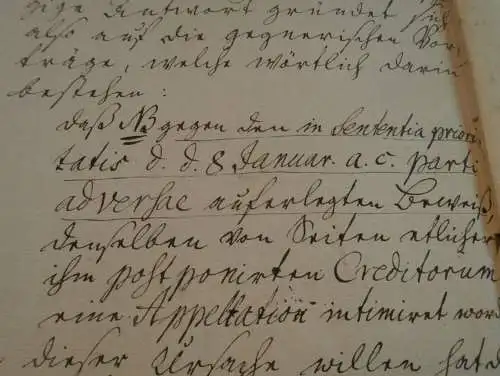 zige Antwort gründet sich
also auf die gegnerischen Vor-
träge, welche wörtlich darin
bestehen:
daß NB gegen den in Sententia priori-
tatis d. d. 8 Januar. a. c. parti
adversae auferlegten Beweiß
denselben von Seiten etlicher
ihm postponirten Creditorum
eine Appellation intimiret word
dieser Ursache willen hat d